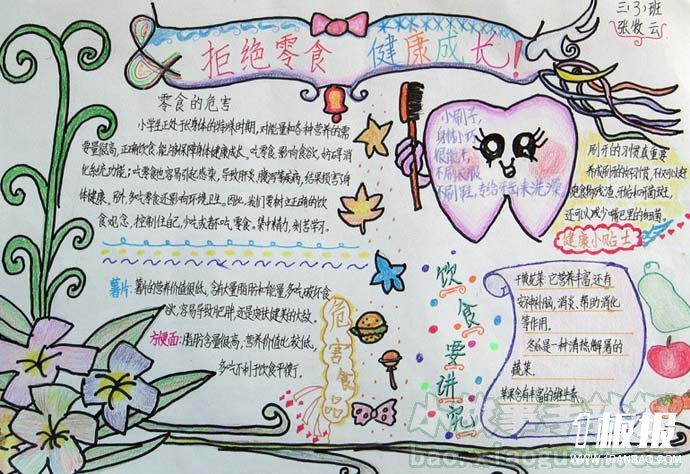 三、3班
张牧云
拒绝零食 健康成长!
零食的危害
小学生正处于长身体的特殊时期,对能量和各种营养的需
要量很高,正确饮食,能为保障身体健康成长。吃零食,影响食欲,妨碍消
化系统功能;吃零食也容易引起感染,导致肝炎、肠胃等疾病,结果损害了身
体健康。另外,多吃零食还影响环境卫生。因此,我们要树立正确的饮
食观念,控制住自己,少吃或者不吃零食。集中精力,刻苦学习。
小刷子,
身体小巧
很能干,
不刷衣服
不刷鞋,专给牙齿来洗澡
刷牙的习惯真重要
养成刷牙的好习惯,不仅可以处
理食物残渣,牙齿和牙菌斑,
还可以减少嘴巴里的细菌。
健康小贴士
薯片:薯片的营养价值很低,含有大量脂肪和能量,多吃破坏食
欲,容易导致肥胖,还是皮肤健美的大敌。
方便面:脂肪含量很高,营养价值比较低,
多吃不利于饮食平衡。
危害食品
饮食要讲究
它营养丰富,还有
安神补脑,消炎,帮助消化
等作用。
冬瓜是一种清热解暑的
蔬菜。
苹果含有丰富的维生素
板报
WWW.1BANBAO.COM